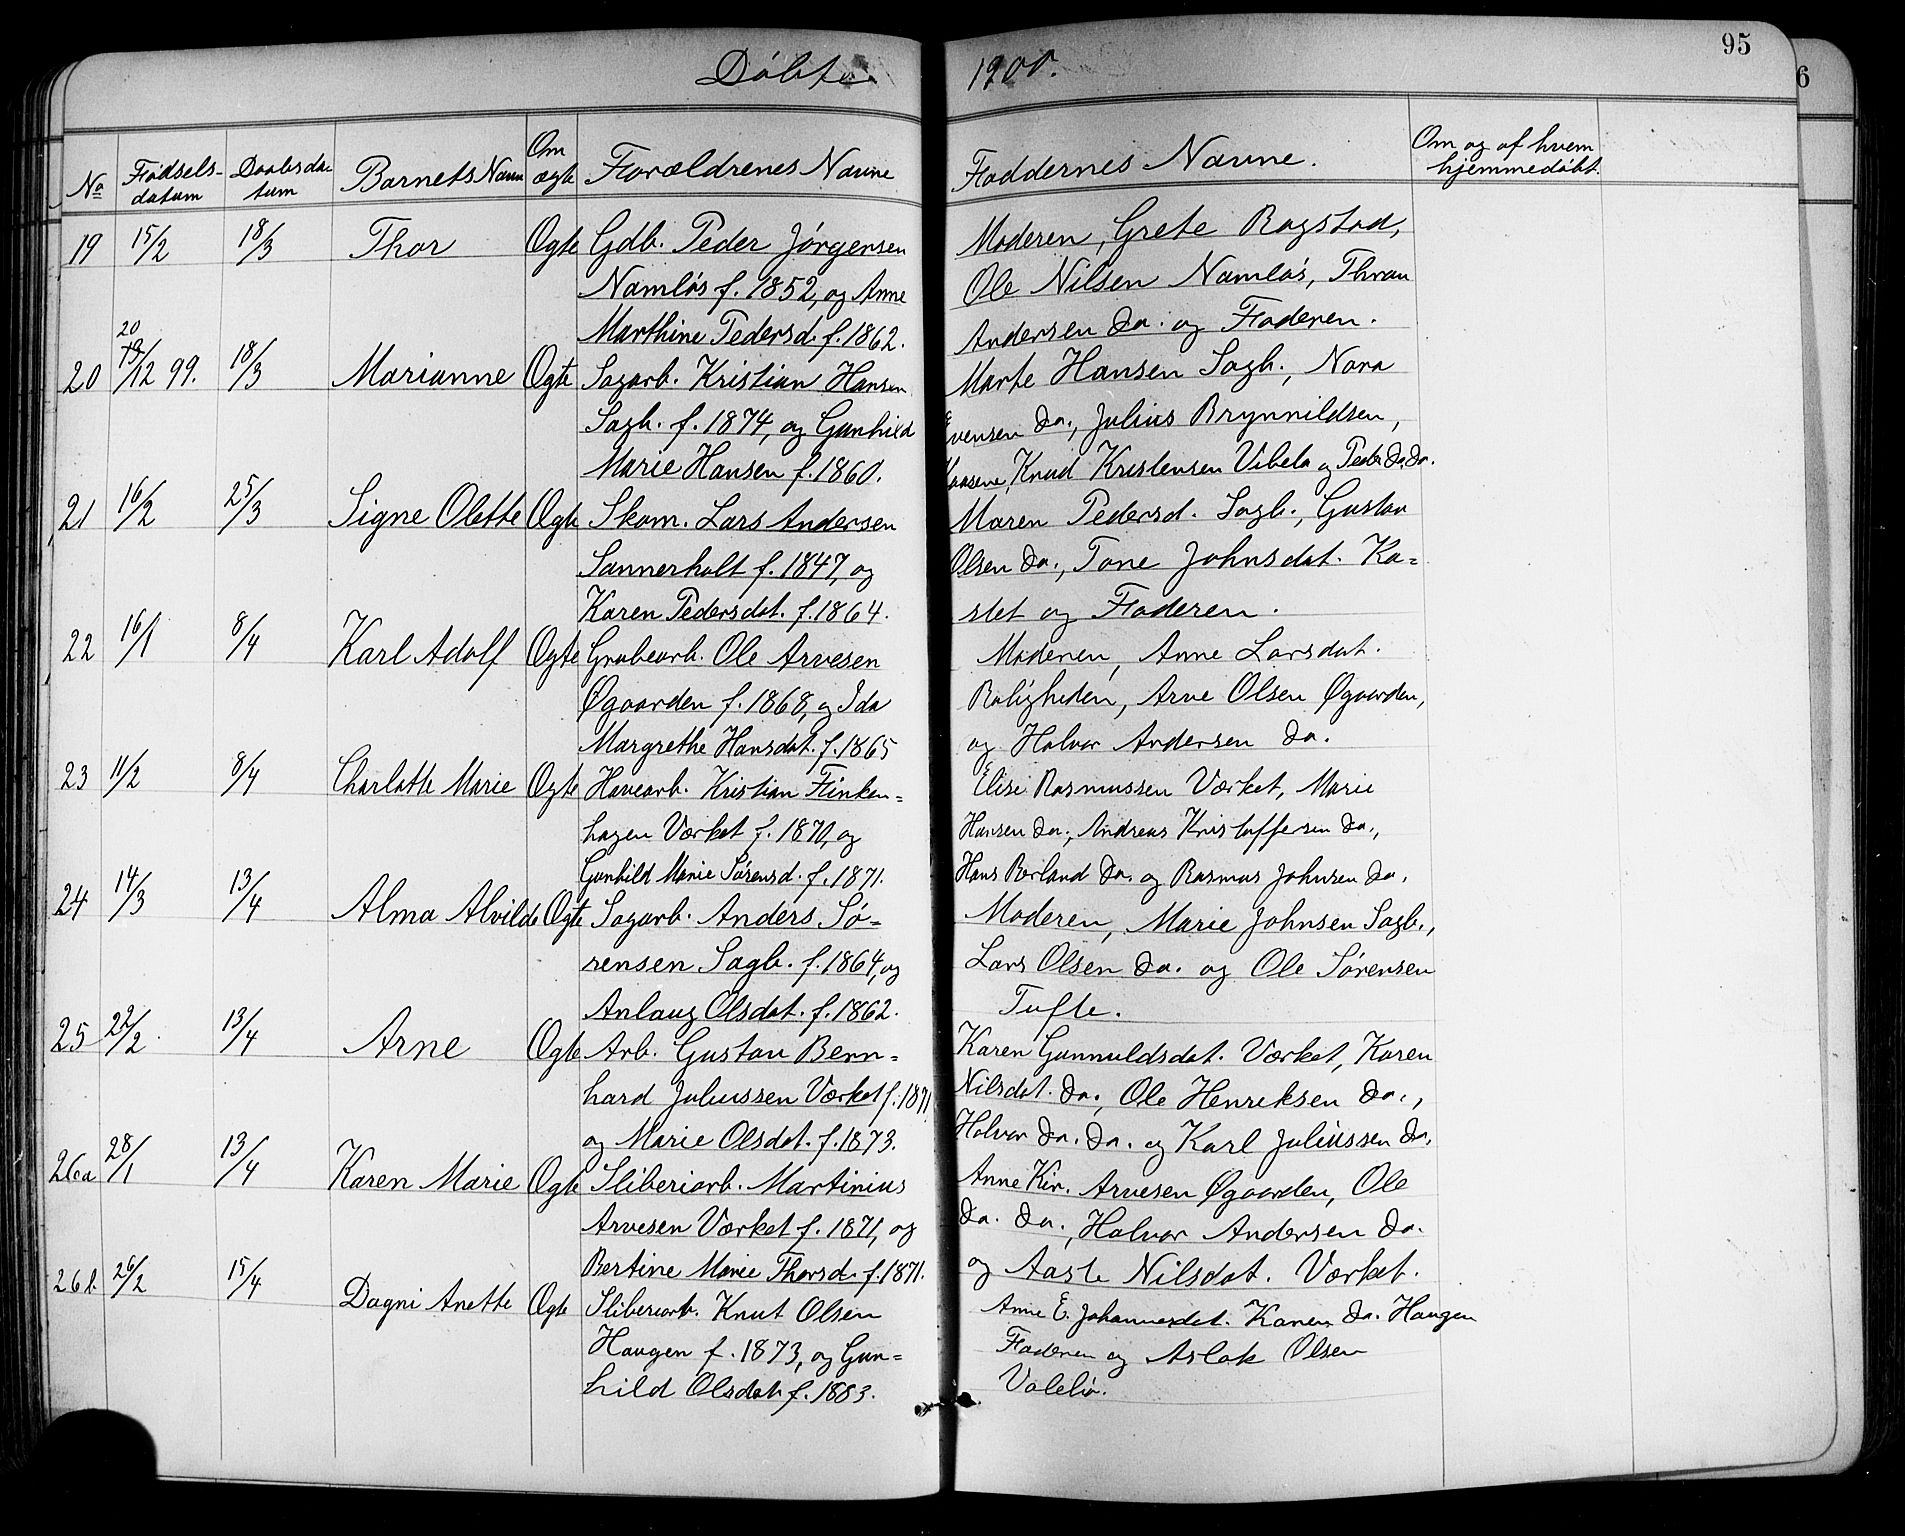 95
6
Døbte 1900.
No Fødselsdatum Daabsdatum Barnets Navn Om ægte Forældrenes Navne Faddernes Navne. Om og af hvem hjemmedøbt.
19 15/2 18/3 Thor Ægte Gdb. Peder Jørgensen Moderen, Grete Ragstad,
Namløs f. 1852, og Anne Ole Nilsen Namløs, Thron
Marthine Pedersd. f. 1862. Andersen Do. og Faderen.
20 20/12 99. 18/3 Marianne Ægte Sagarb. Kristian Hansen Marte Hansen Sagb., Nara
Sagb. f. 1874, og Gunhild Evensen Do., Julius Brynnildsen,
Marie Hansen f. 1860. Knud Kristensen Vibeto og Peder Do. Do.
21 16/2 25/3 Signe Olette Ægte Skom. Lars Andersen Maren Pedersd. Sagb., Gustav
Sannerholt f. 1847, og Olsen Do., Tone Johnsdat. Ka=
Karen Pedersdat. f. 1864. stet og Faderen.
22 16/1 8/4 Karl Adolf Ægte Grubearb. Ole Arvesen Moderen, Anne Larsdat.
Øgaarden f. 1868, og Ida Roligheden, Arve Olsen Øgaarden,
Margrethe Hansdat. f. 1865 og Halvor Andersen Do.
23 11/2 8/4 Charlotte Marie Ægte Havearb. Kristian Finken= Elise Rasmussen Værket, Marie
hagen Værket f. 1870, og Hansen Do., Andreas Kristoffersen Do.,
Gunhild Marie Sørensd. f. 1871. Hans Berland Do. og Rasmus Johnsen Do.
24 14/3 13/4 Alma Alvilde Ægte Sagarb. Anders Sø= Moderen, Marie Johnsen Sagb.,
rensen Sagb. f. 1864, og Lars Olsen Do. og Ole Sørensen
Anlaug Olsdat. f. 1862. Tufte.
25 22/2 13/4 Arne Ægte Arb. Gustav Bern= Karen Gunnuldsdat. Værket, Karen
hard Juliussen Værket f. 1871 Nilsdat. Do., Ole Henriksen Do.,
og Marie Olsdat. f. 1873. Halvor Do. Do. og Karl Juliussen Do.
26a 28/1 13/4 Karen Marie Ægte Sliberiarb. Martinius Anne Kir. Arvesen Øgaarden, Ole
Arvesen Værket f. 1871, og Do. Do., Halvor Andersen Do.
Bertine Marie Thorsd. f. 1871. og Aaste Nilsdat. Værket.
26b. 26/2 15/4 Dagni Anette Ægte Sliberiarb. Knut Olsen Anne E. Johannesdat. Karen Do. Haugen
Haugen f. 1873, og Gun= Faderen og Aslak Olsen
hild Olsdat. f. 1883. Valebø.